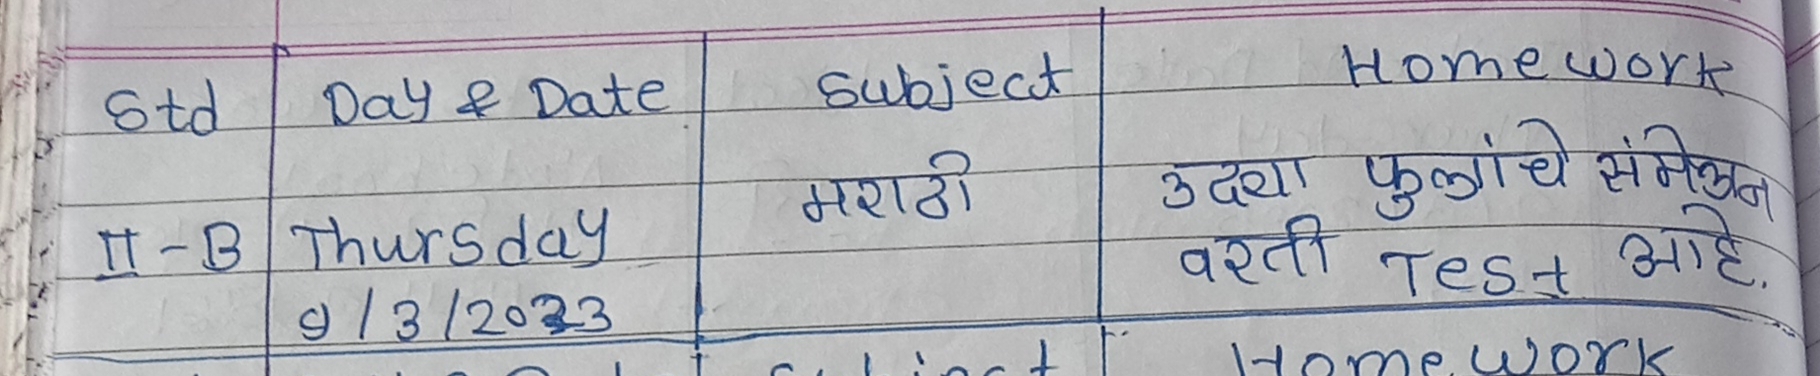 Std Day & Date Subject Homework
मराठी उदया फुलांचे संमेलन
II-B Thursday वरती Test आहे.
9/3/2023
Subject Homework